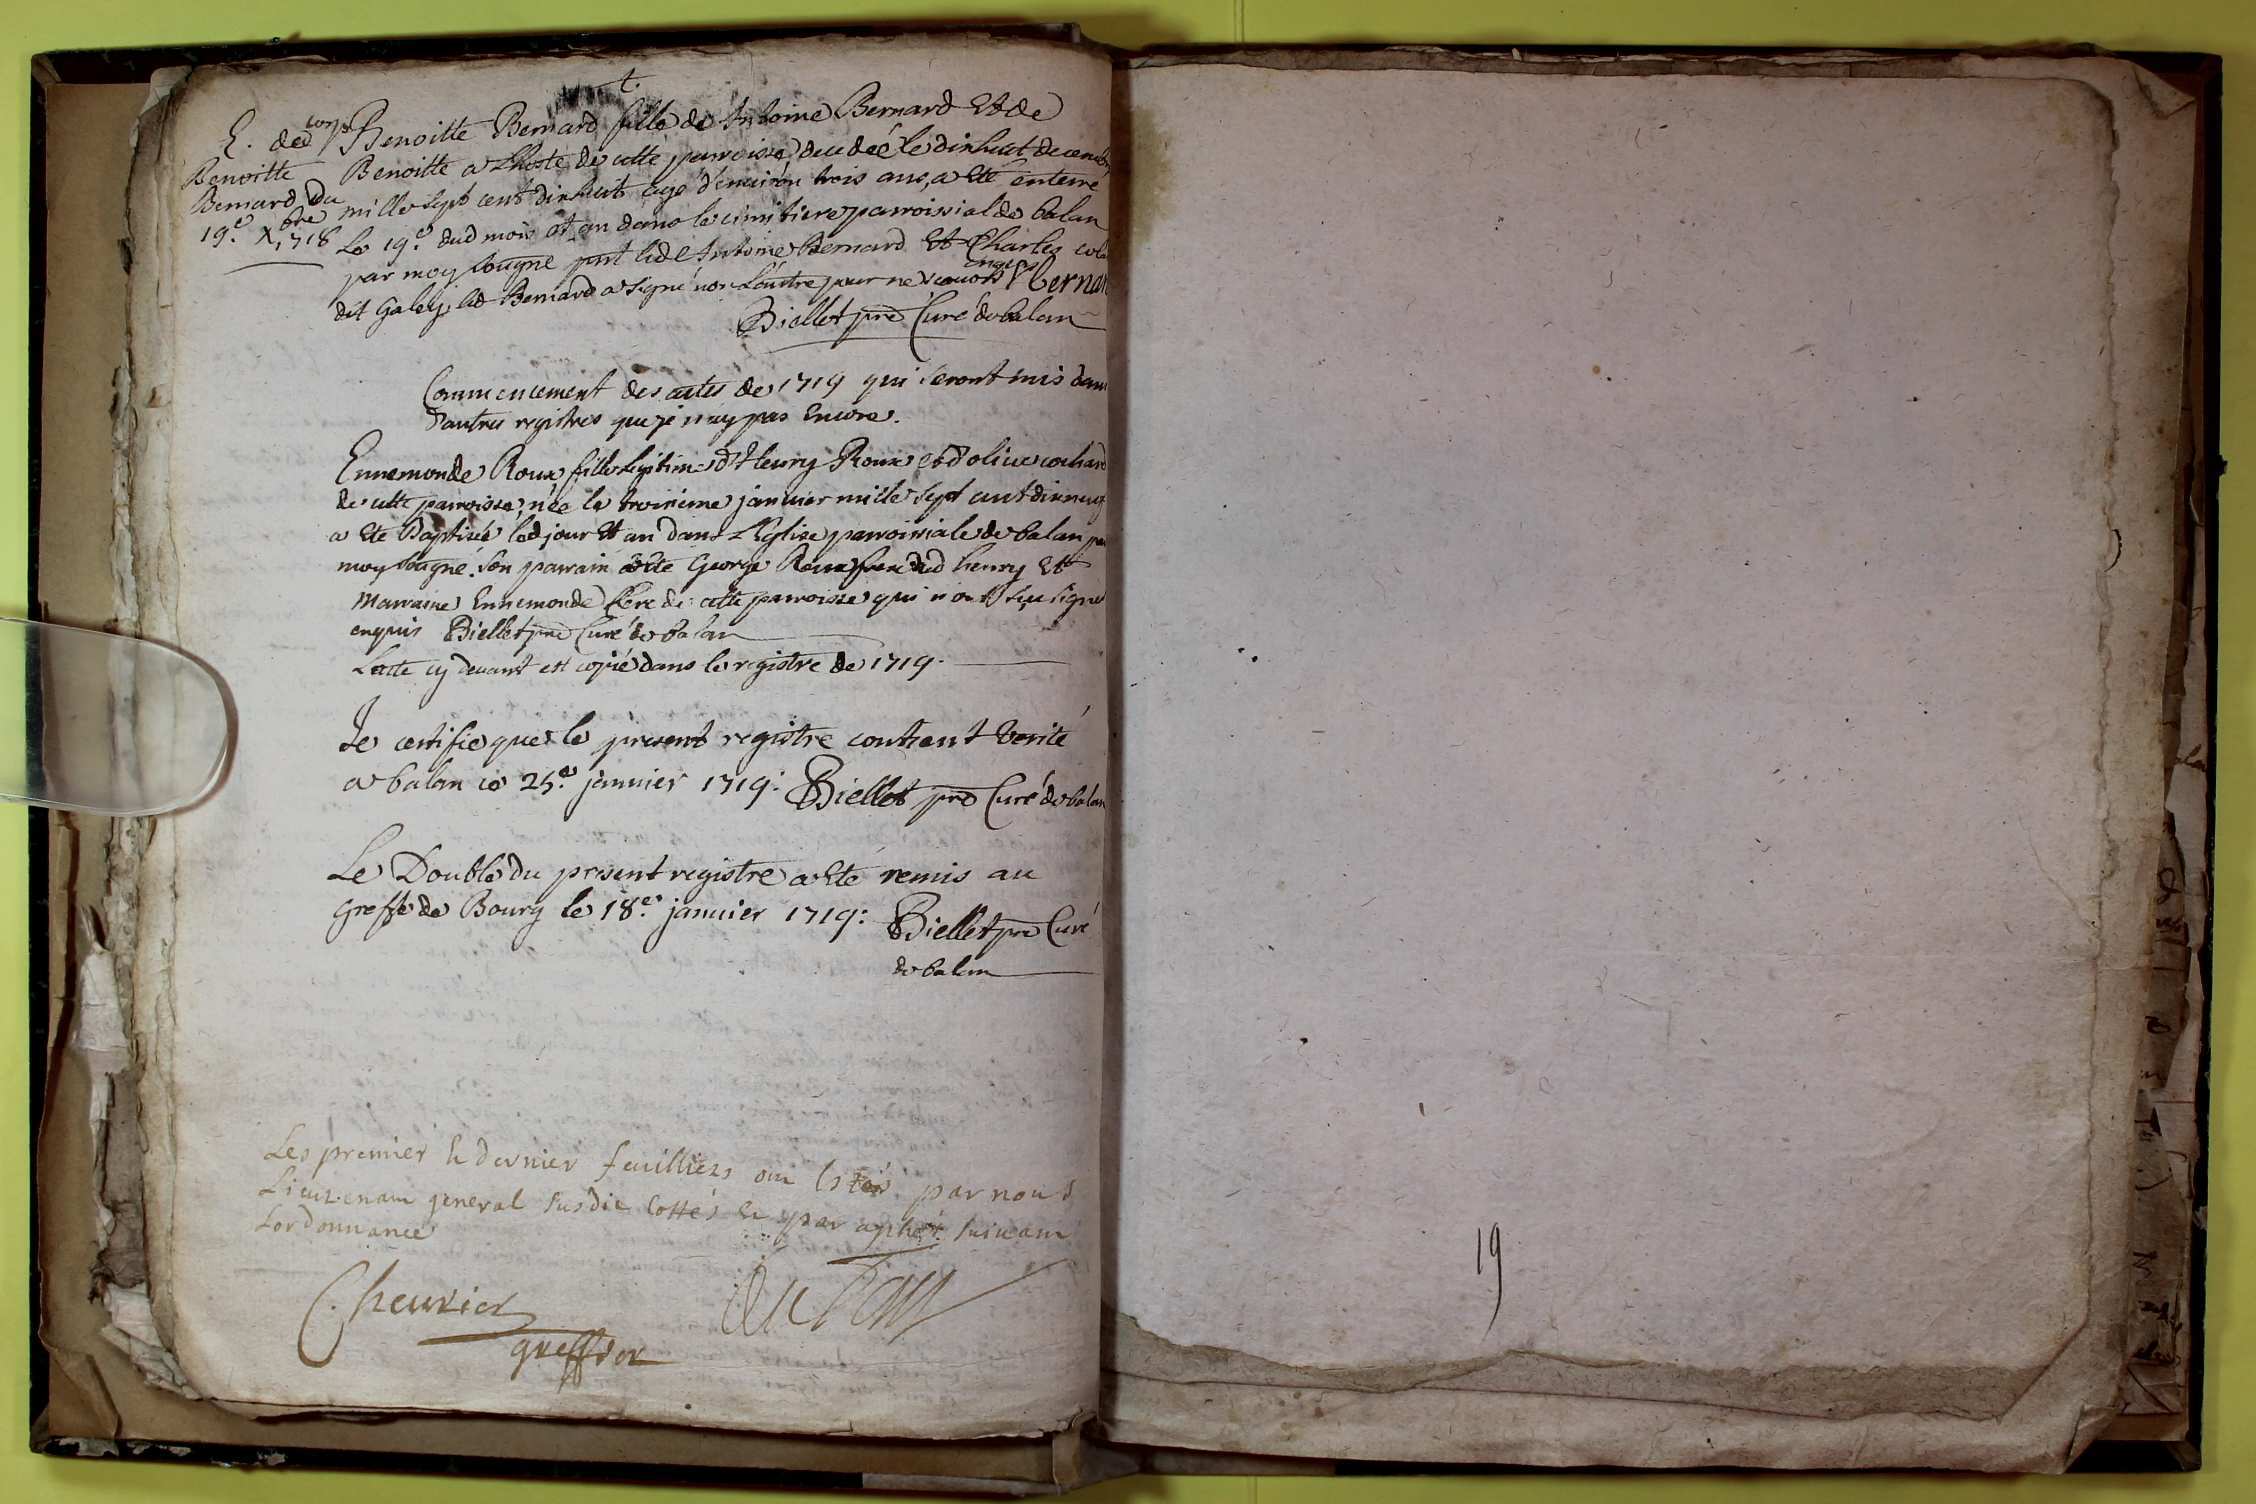 t.
E. des corps
Benoitte
Bernard du
19.e Xbre 1718
Benoitte Bernard fille de Antoine Bernard Et de
Benoitte a Lhoste de cette parroisse, decedeé le dixhuit decembre
mille sept cent dixhuit agé d'environ trois ans, a Eté enterré
Le 19.e dud mois et an dans le cimitiere parroissial de balan
par moy sousigné pnt led Antoine Bernard Et Charles
dit Galey, led Bernard a signé non L'autre pour ne scavoir enquis ABernard
Biellet pre Curé de balan
Commencement des actes de 1719 qui seront mis dans
d'autres registres que je n'ay pas Encore.
Ennemonde Roux fille legitime d'Henry Roux et d'olive cochard
de cette parroisse, née le troisieme janvier mille sept cent dixneuf
a Eté Baptisée led jour Et an dans L'Eglise parroissiale de balan par
moy sousigné. son parrain a Eté George Roux frere dud henry Et
Marraine Ennemonde de cette parroisse qui n'ont sçu signer
enquis Biellet pre Curé de balan
Lacte cy devant est copié dans le registre de 1719.
Je certifie que le present registre contient verité
a balan ce 25.e janvier 1719: Biellet pre Curé de balan
Le Double du present registre a Eté remis au
Greffe de Bourg le 18.e janvier 1719: Biellet pre Curé
de balan
Les premier et dernier feuilliets ont Estés par nous
Lieutenant general susdit Cottés et paraphés suivant
Lordonnance
Cheurier
greffier
19